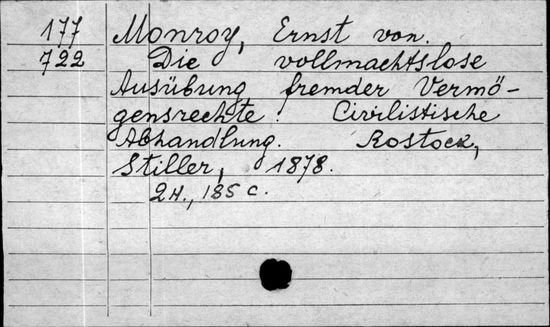 177 Monroy, Ernst von.
722 Die vollmachtslose
Ausübung fremder Vermö-
gensrechte: Civilistische
Abhandlung. Rostock,
Stiller, 1878.
2 н., 185 с.